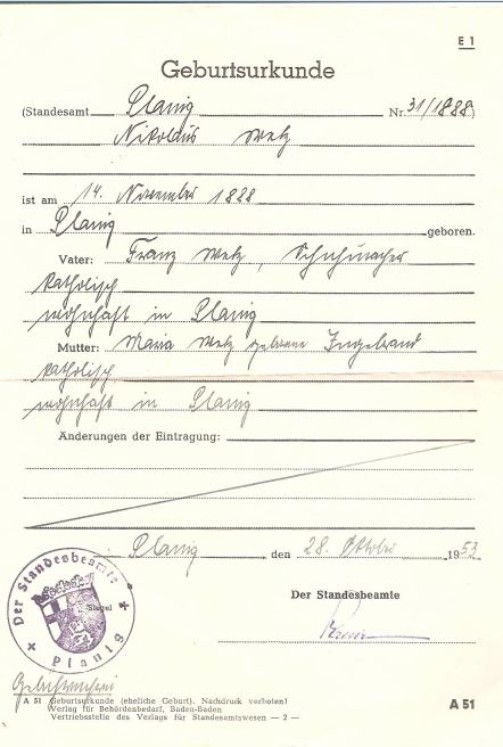 E 1
Geburtsurkunde
(Standesamt Planig Nr. 31/1888)
Nikolaus Metz
ist am 14. November 1888
in Planig geboren.
Vater: Franz Metz, Schuhmacher
katholisch
wohnhaft in Planig
Mutter: Maria Metz geborene Ingebrand
katholisch
wohnhaft in Planig
Änderungen der Eintragung:
Planig, den 28. Oktober 1953
Der Standesbeamte
Siegel
Der Standesbeamte
Planig
Gebührenfrei
A 51 Geburtsurkunde (eheliche Geburt). Nachdruck verboten!
Verlag für Behördenbedarf, Baden-Baden
Vertriebsstelle des Verlags für Standesamtswesen — 2 —
A 51